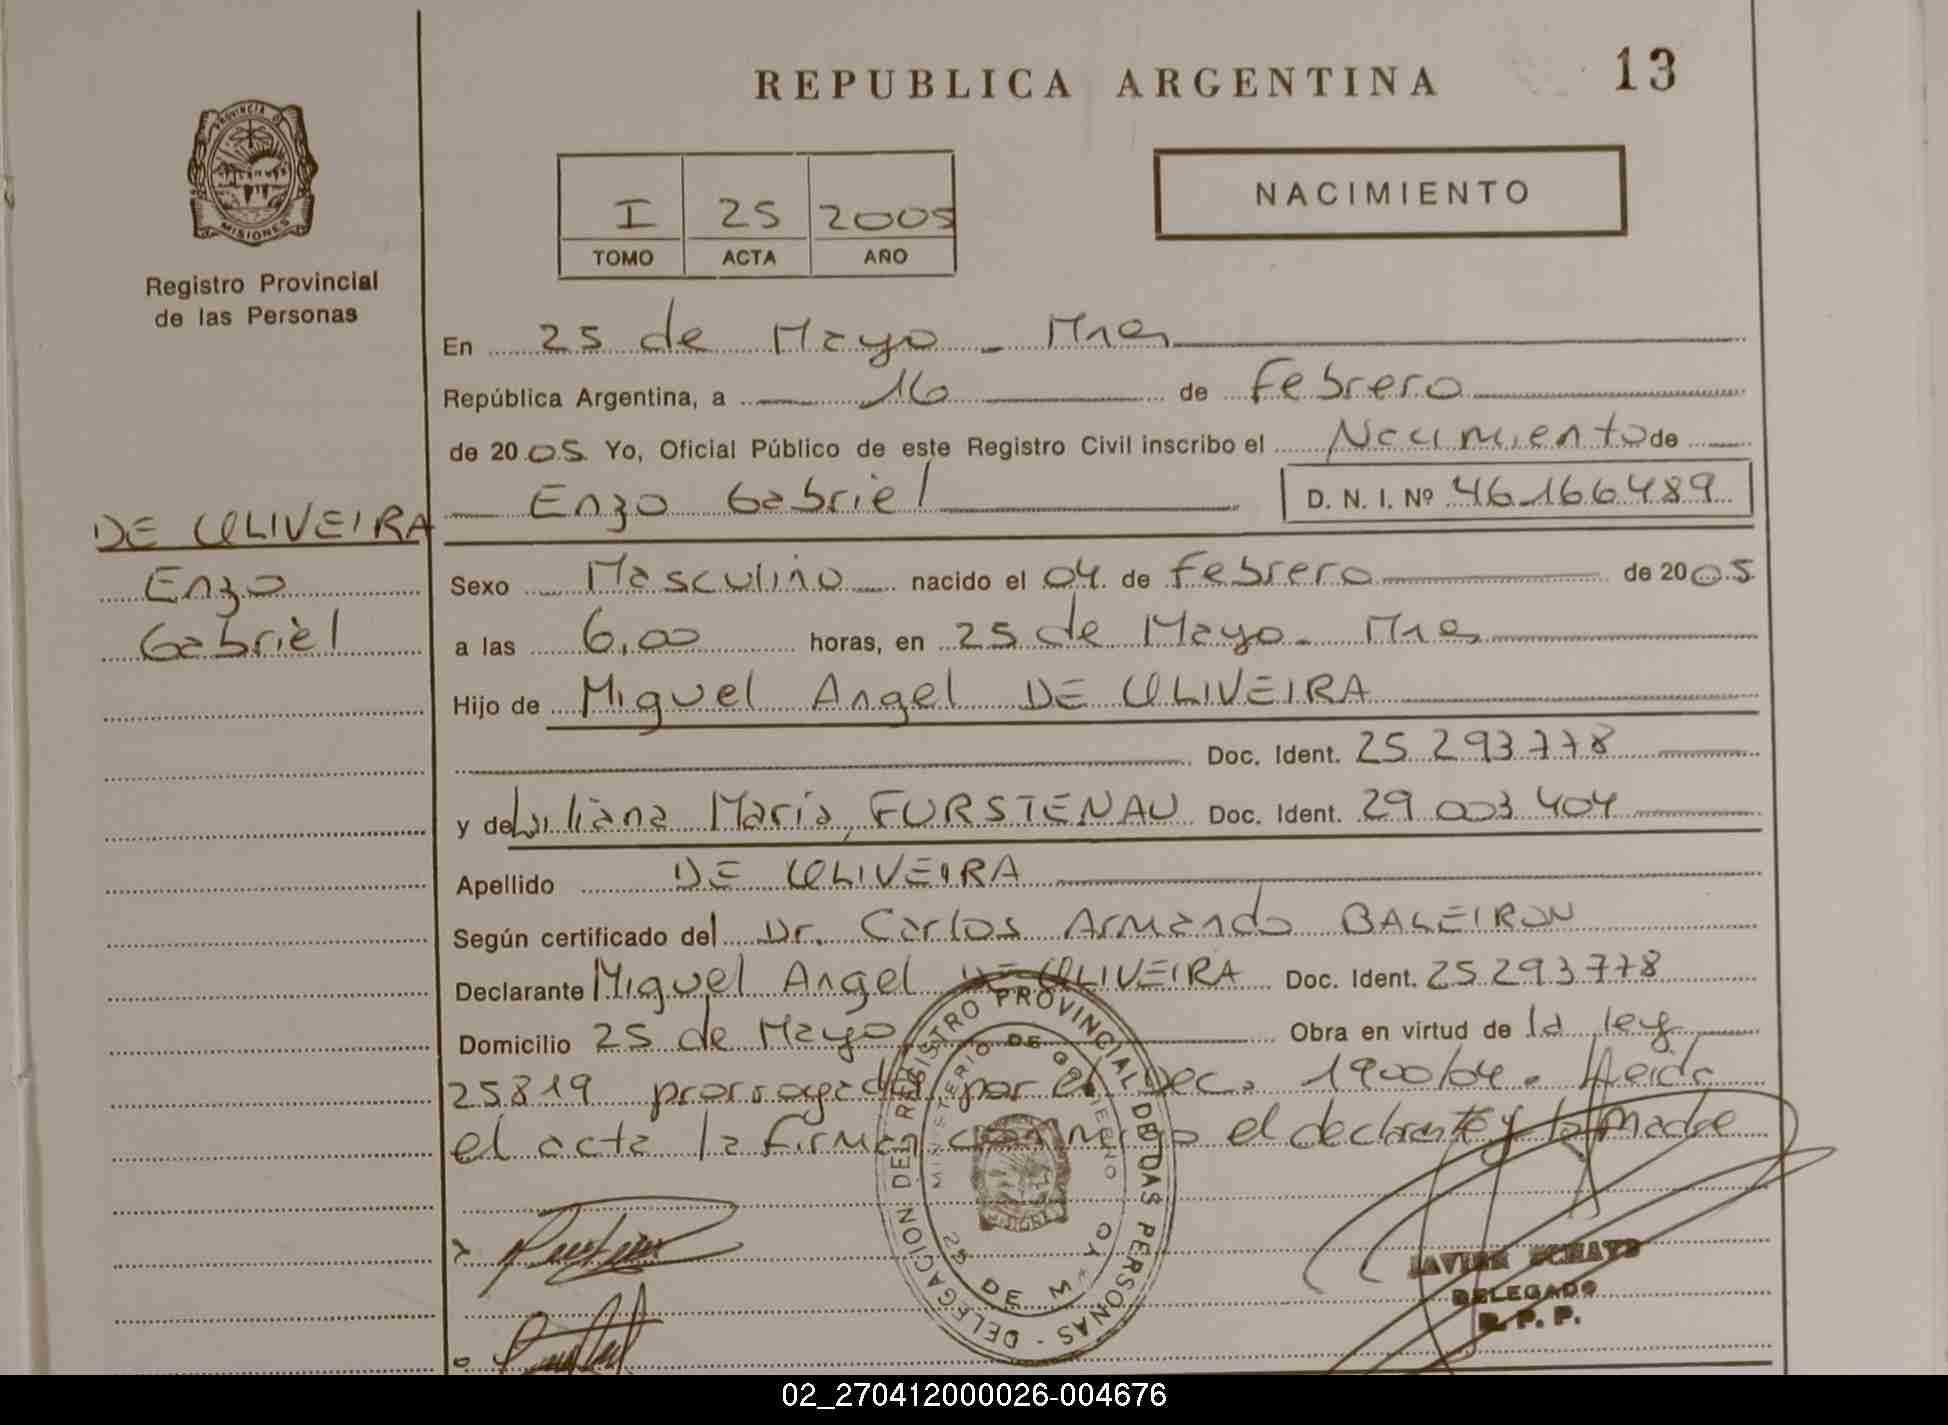 REPUBLICA ARGENTINA
13
PROVINCIA DE
MISIONES
Registro Provincial
de las Personas
I 25 2005
TOMO ACTA AÑO
NACIMIENTO
En 25 de Mayo - Mnes
República Argentina, a 16 de Febrero
de 2005 Yo, Oficial Público de este Registro Civil inscribo el Nacimiento de
Enzo Gabriel D. N. I. Nº 46.166.489
DE OLIVEIRA
Enzo
Gabriel
Sexo Masculino nacido el 04 de Febrero de 2005
a las 6,00 horas, en 25 de Mayo - Mnes
Hijo de Miguel Angel DE OLIVEIRA
Doc. Ident. 25.293.778
y de Liliana Maria FURSTENAU Doc. Ident. 29.003.404
Apellido DE OLIVEIRA
Según certificado del Dr. Carlos Armando BALEIRON
Declarante Miguel Angel DE OLIVEIRA Doc. Ident. 25.293.778
Domicilio 25 de Mayo Obra en virtud de la ley
25819 prorrogada por el Dec. 1900/04. Leida
el acta la firman conmigo el declarante y la madre
DELEGACION DEL REGISTRO PROVINCIAL DE LAS PERSONAS -
MINISTERIO DE GOBIERNO
25 DE MAYO
JAVIER
DELEGADO
R. P. P.
02_270412000026-004676